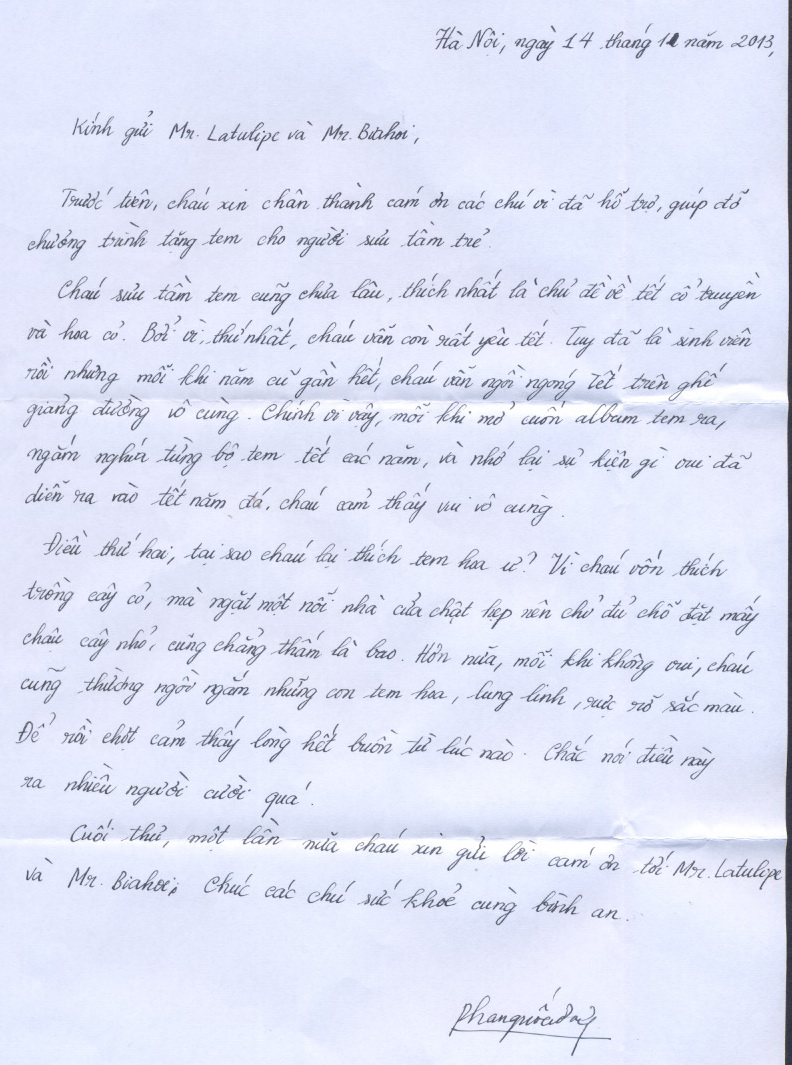 Hà Nội, ngày 14 tháng 11 năm 2013,
Kính gửi Mr. Latulipe và Mr. Biahoi,
Trước tiên, cháu xin chân thành cám ơn các chú vì đã hỗ trợ, giúp đỡ
chương trình tặng tem cho người sưu tầm trẻ.
Cháu sưu tầm tem cũng chưa lâu, thích nhất là chủ đề về tết cổ truyền
và hoa cỏ. Bởi vì, thứ nhất, cháu vẫn còn rất yêu tết. Tuy đã là sinh viên
rồi nhưng mỗi khi năm cũ gần hết, cháu vẫn ngồi ngóng Tết trên ghế
giảng đường vô cùng. Chính vì vậy, mỗi khi mở cuốn album tem ra,
ngắm nghía từng bộ tem tết các năm, và nhớ lại sự kiện gì vui đã
diễn ra vào tết năm đó, cháu cảm thấy vui vô cùng.
Điều thứ hai, tại sao cháu lại thích tem hoa ư? Vì cháu vốn thích
trồng cây cỏ, mà ngặt một nỗi nhà cửa chật hẹp nên chỉ đủ chỗ đặt mấy
chậu cây nhỏ, cũng chẳng thấm là bao. Hơn nữa, mỗi khi không vui, cháu
cũng thường ngồi ngắm những con tem hoa, lung linh, rực rỡ sắc màu.
Để rồi chợt cảm thấy lòng hết buồn từ lúc nào. Chắc nói điều này
ra nhiều người cười quá!
Cuối thư, một lần nữa cháu xin gửi lời cám ơn tới Mr. Latulipe
và Mr. Biahoi, Chúc các chú sức khoẻ cùng bình an.